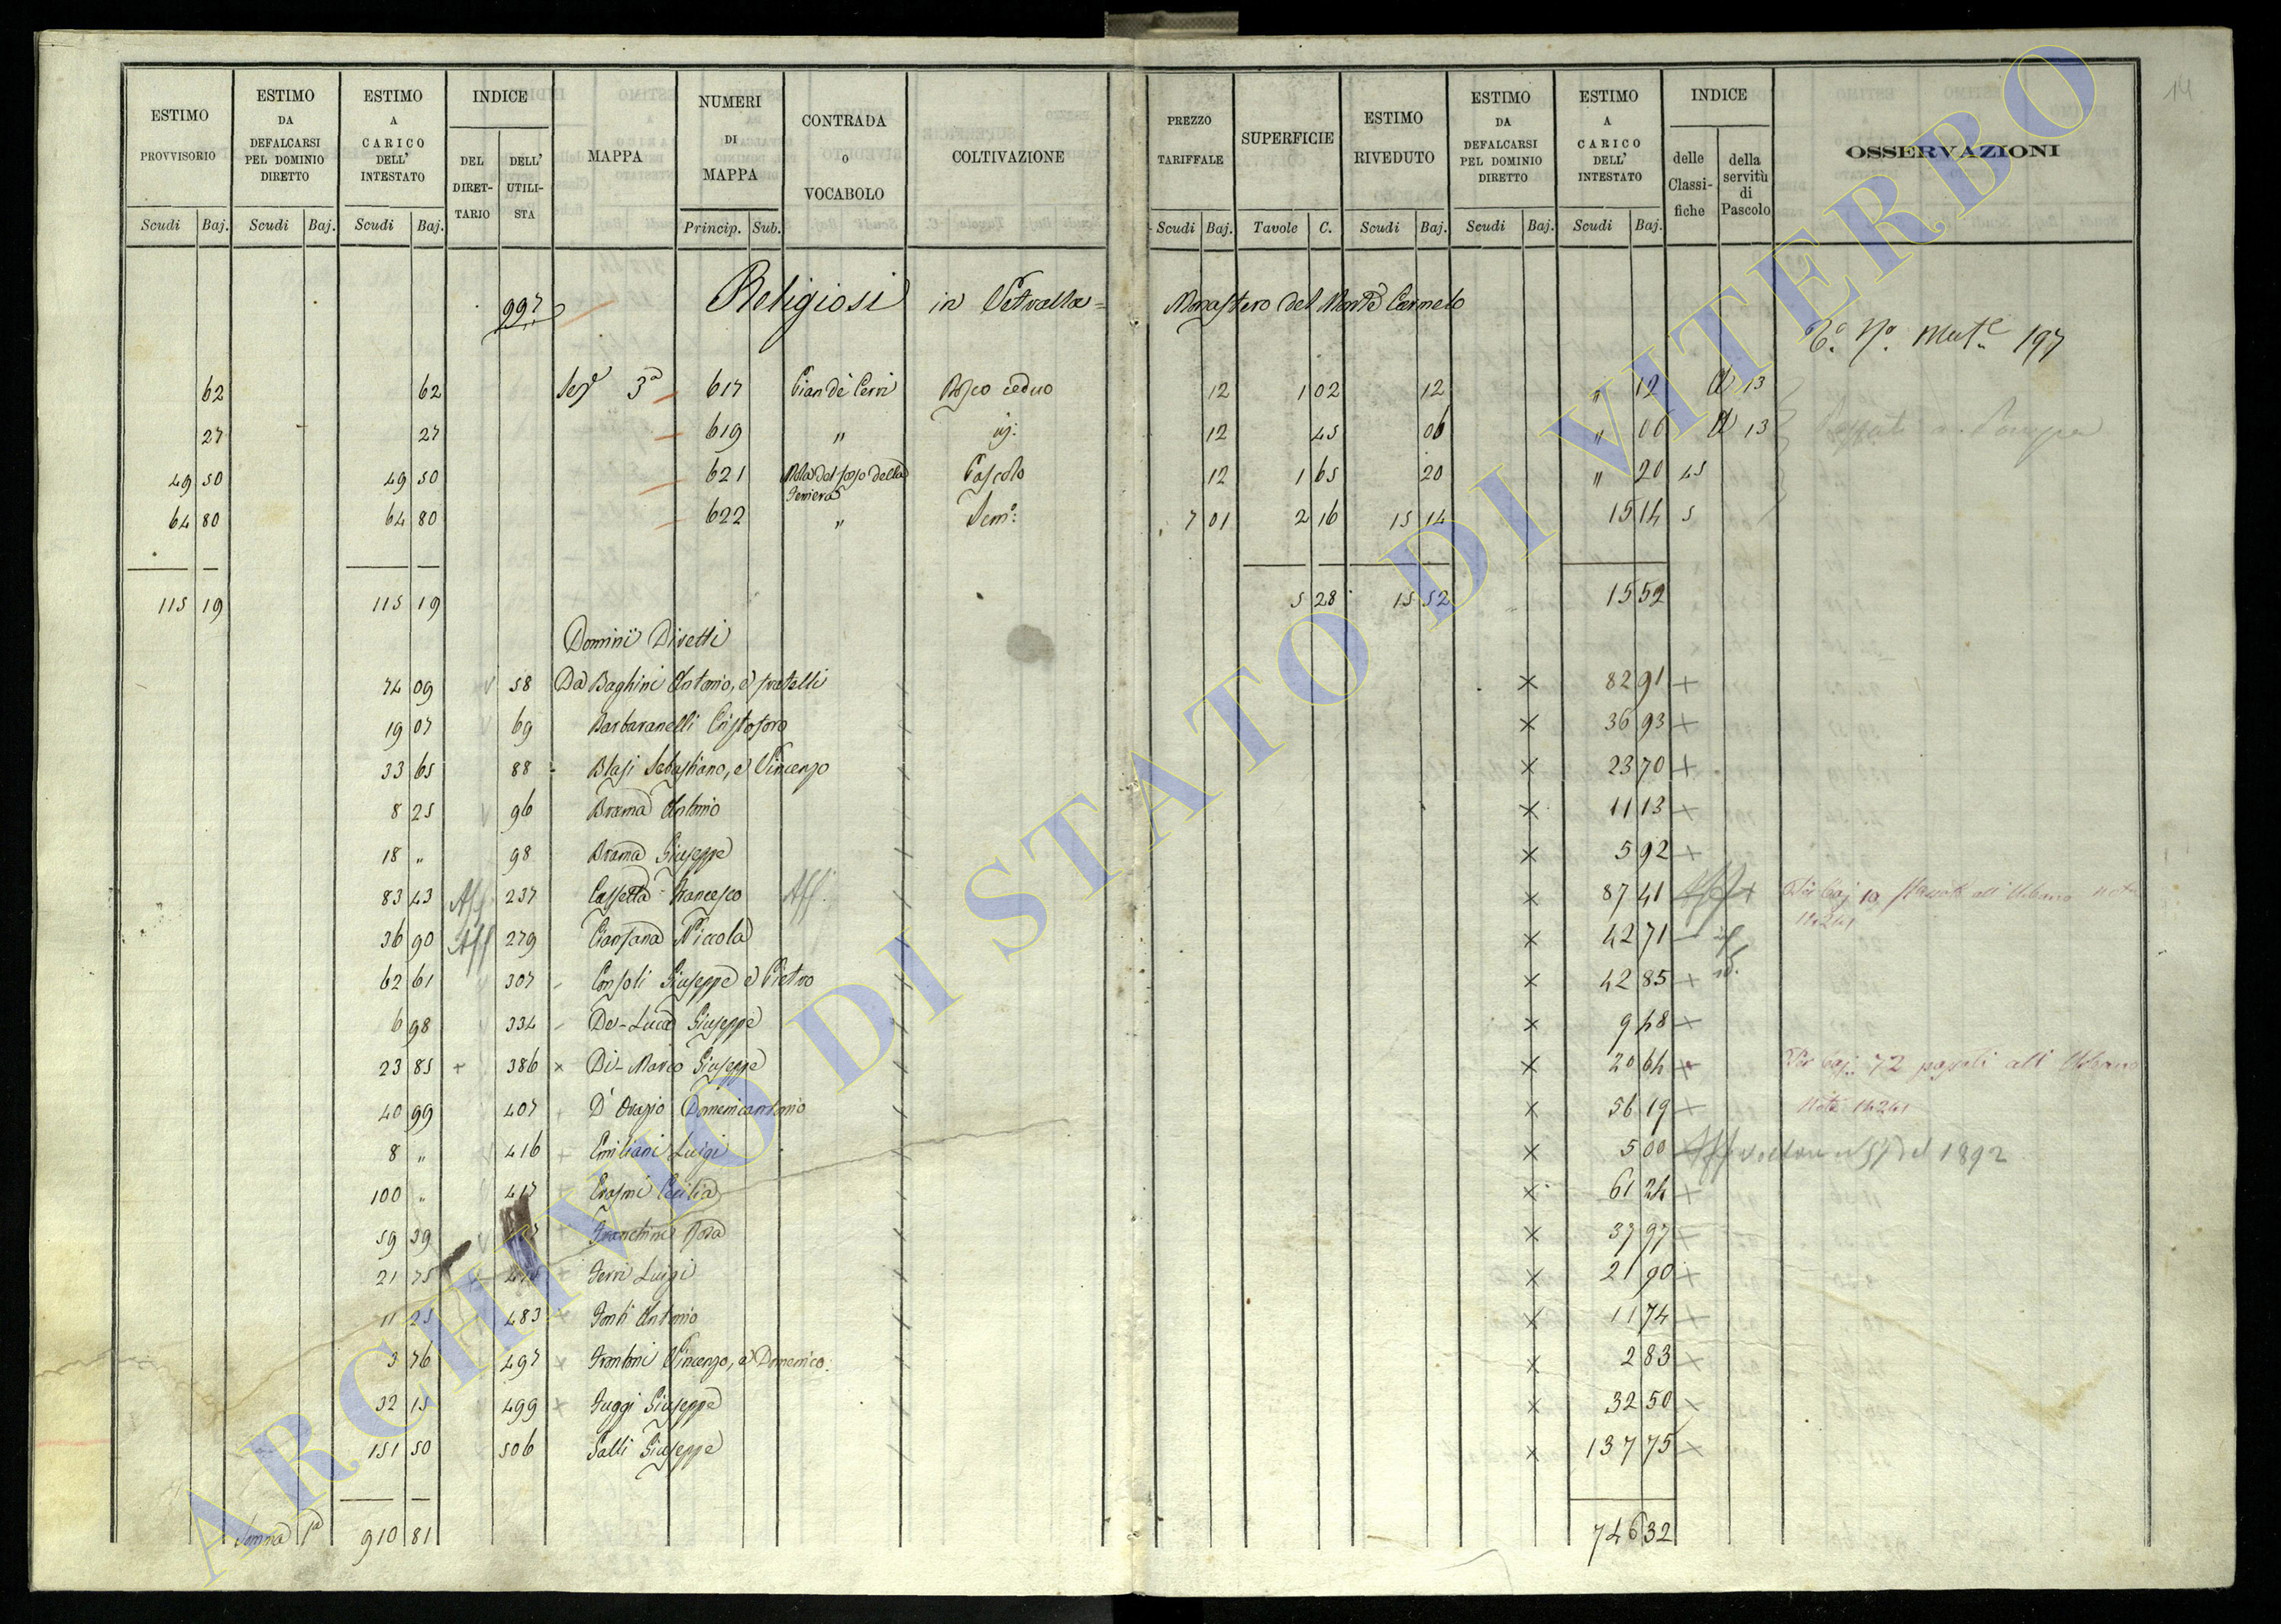 14
ESTIMO PROVVISORIO Scudi Baj.
ESTIMO DA DEFALCARSI PEL DOMINIO DIRETTO Scudi Baj.
ESTIMO A CARICO DELL' INTESTATO Scudi Baj.
INDICE DEL DIRETTARIO DELL' UTILISTA
MAPPA
NUMERI DI MAPPA Princip. Sub.
CONTRADA O VOCABOLO
COLTIVAZIONE
PREZZO TARIFFALE Scudi Baj.
SUPERFICIE Tavole C.
ESTIMO RIVEDUTO Scudi Baj.
ESTIMO DA DEFALCARSI PEL DOMINIO DIRETTO Scudi Baj.
ESTIMO A CARICO DELL' INTESTATO Scudi Baj.
INDICE delle Classifiche della servitù di Pascolo
OSSERVAZIONI
997 Religiosi in Vetralla = Monastero del Monte Carmelo
197
62 62 3ª 617 Pian de Cerri Bosco ceduo 12 1 02 12 " 12 13
27 27 619 " 12 45 06 " 06 13
49 50 49 50 621 della Ferriera Pascolo 12 1 65 20 " 20 45
64 80 64 80 622 " Sem: 7 01 2 16 15 14 15 14 5
115 19 115 19 5 28 15 52 15 52
Dominii Diretti
74 09 58 Da Baghini Antonio, e fratelli × 82 91 +
19 07 69 Barbaranelli Cristoforo × 36 93 +
33 65 88 Blasi Sebastiano, e Vincenzo × 23 70 +
8 25 96 Brama Antonio × 11 13 +
18 " 98 Brama Giuseppe × 5 92 +
83 43 Aff. 237 Cassetta Francesco Aff. × 87 41 Per baj. 10
14241
36 90 Aff 279 Niccola × 42 71
62 61 307 Consoli Giuseppe e Pietro × 42 85 + id.
6 98 334 De-Luca Giuseppe × 9 48 +
23 85 + 386 × Di-Marco Giuseppe × 20 64 + Per baj. 72 passati all' Urbano
40 99 407 D'Orazio Domenicantonio × 56 19 + Nota 14241
8 " 416 + Emiliani Luigi × 5 00 del 1892
100 " 417 + Cecilia × 61 24 +
59 39 + Franchini Rosa × 37 97 +
21 75 + Ferri Luigi × 21 90 +
11 25 483 × Fonti Antonio × 11 74 +
3 76 497 × Frontoni Vincenzo, e Domenico × 2 83 ×
32 15 499 × Fuggi Giuseppe × 32 50 ×
151 50 506 Galli Giuseppe × 137 75 ×
Somma 1ª 910 81 746 32
ARCHIVIO DI STATO DI VITERBO